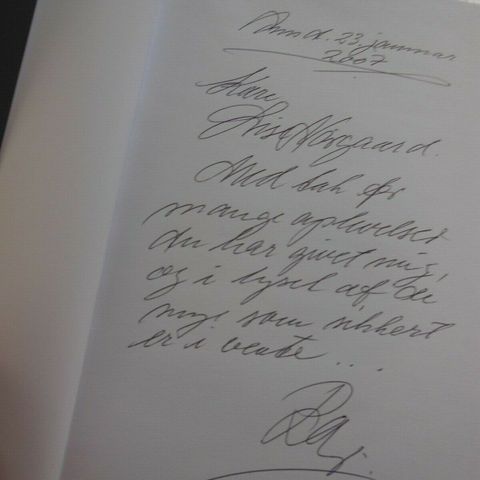 d. 23. januar
2007
Kære
Lise Nørgaard.
Med tak for
mange oplevelser
du har givet mig,
og i lyset af de
nye som sikkert
er i vente ...